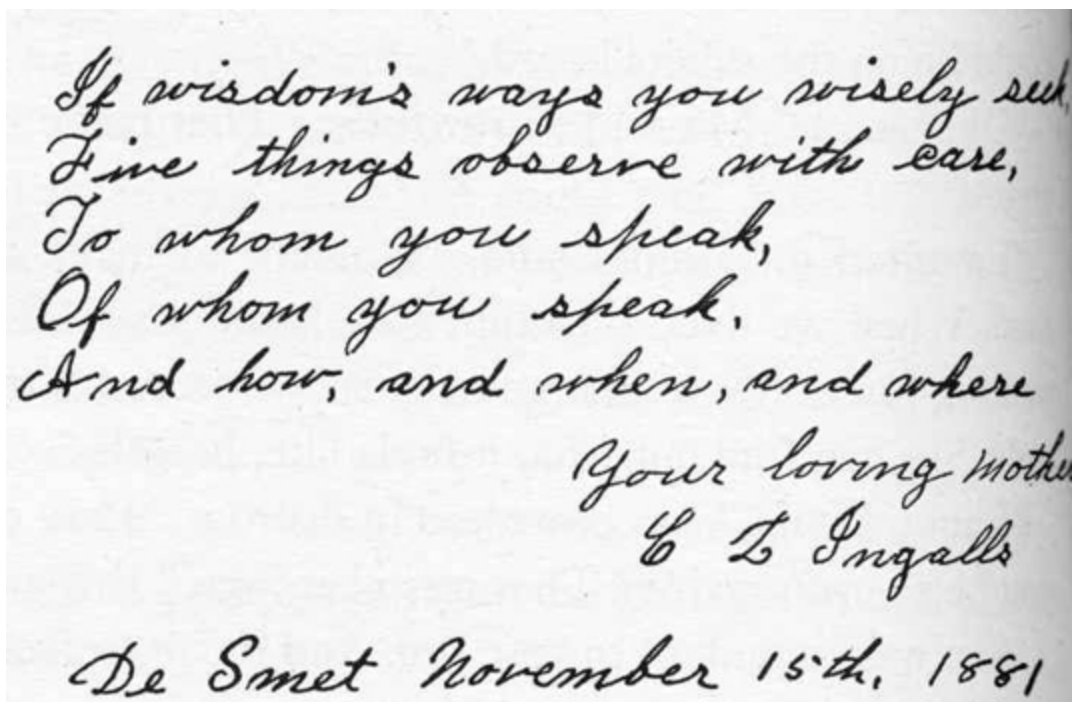 If wisdom's ways you wisely seek,
Five things observe with care,
To whom you speak,
Of whom you speak,
And how, and when, and where
Your loving mother
C L Ingalls
De Smet November 15th, 1881